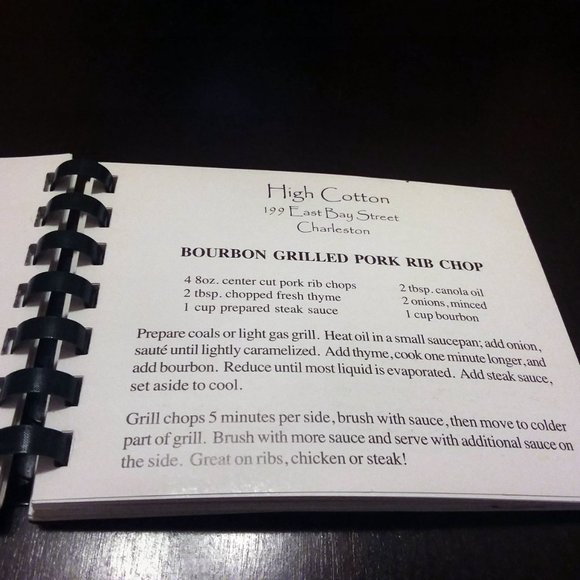 High Cotton
199 East Bay Street
Charleston
BOURBON GRILLED PORK RIB CHOP
4 8oz. center cut pork rib chops 2 tbsp. canola oil
2 tbsp. chopped fresh thyme 2 onions, minced
1 cup prepared steak sauce 1 cup bourbon
Prepare coals or light gas grill. Heat oil in a small saucepan; add onion,
sauté until lightly caramelized. Add thyme, cook one minute longer, and
add bourbon. Reduce until most liquid is evaporated. Add steak sauce,
set aside to cool.
Grill chops 5 minutes per side, brush with sauce, then move to colder
part of grill. Brush with more sauce and serve with additional sauce on
the side. Great on ribs, chicken or steak!